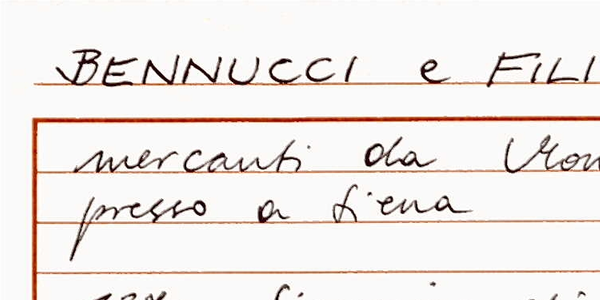 BENNUCCI e FILI
mercanti da
presso a Siena